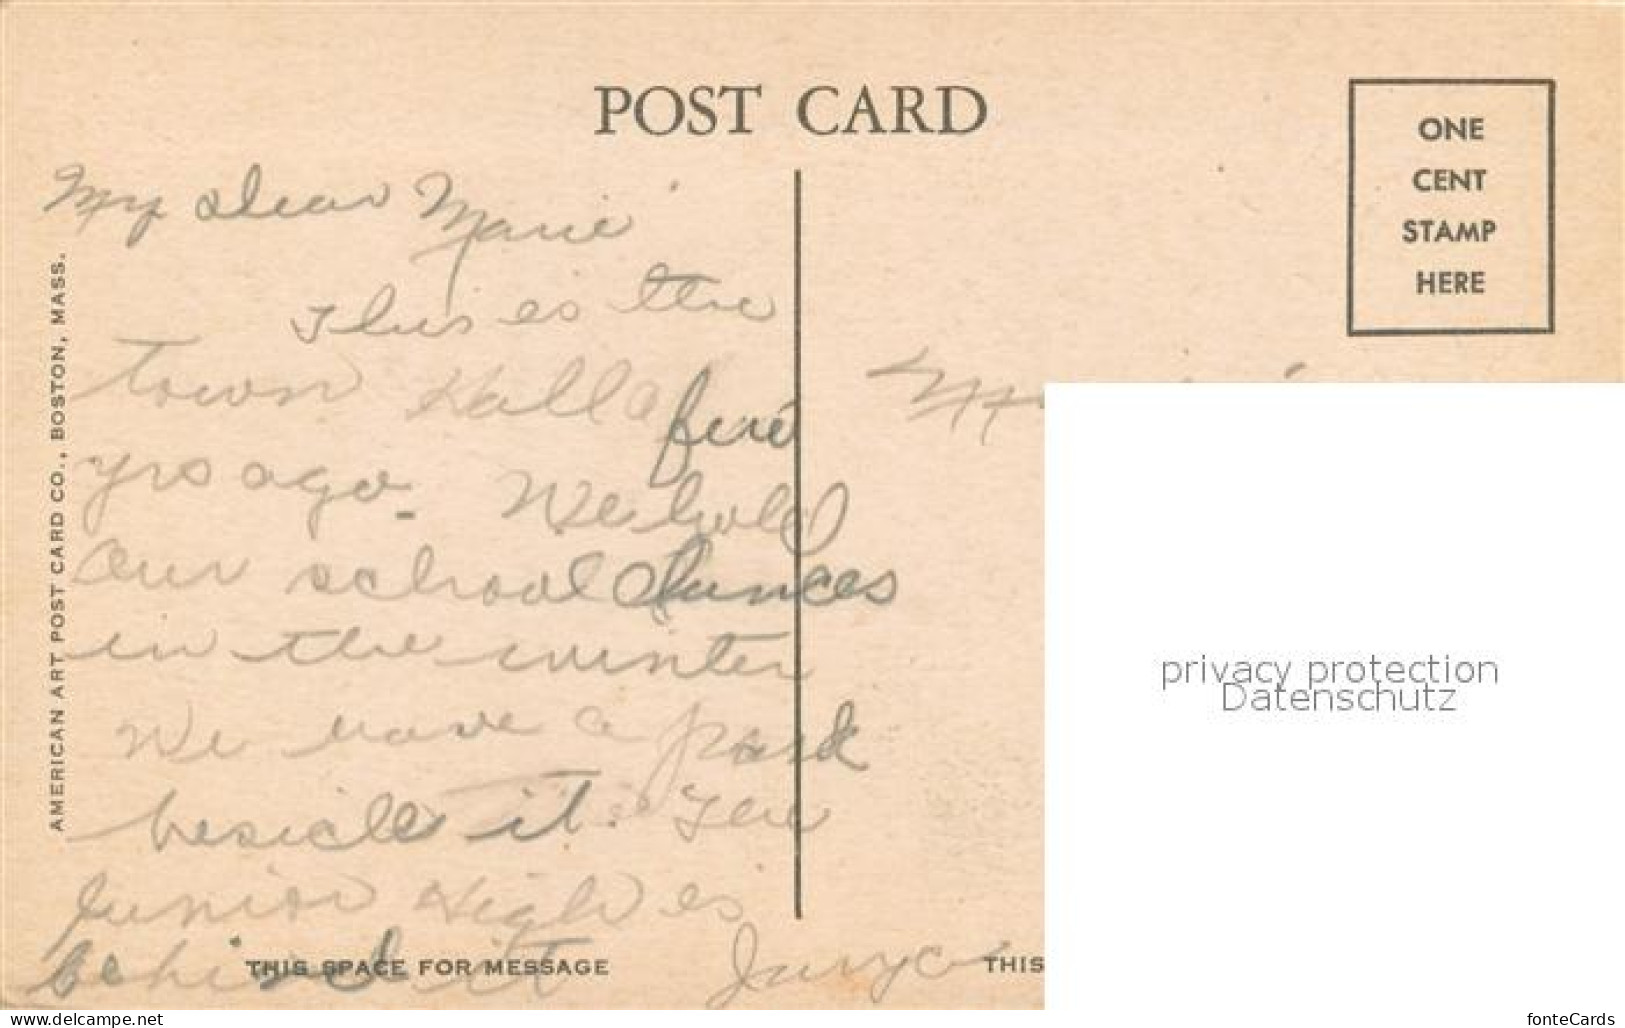 POST CARD
ONE
CENT
STAMP
HERE
My dear Marie
This is the
town Hall a few
yrs ago - We hold
our school dances
in the winter
We have a park
beside it. The
Junior High is
behind it
THIS SPACE FOR MESSAGE
THIS
AMERICAN ART POST CARD CO., BOSTON, MASS.
privacy protection
Datenschutz
www.delcampe.net
fonteCards